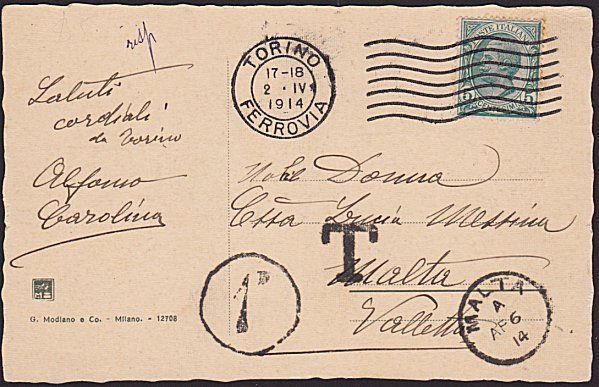 risp
Saluti
cordiali
da Torino
Alfonso
Carolina
G. Modiano e Co. - Milano. - 12708
TORINO
17-18
2 · IV
1914
FERROVIA
POSTE ITALIANE
5 CENTESIMI 5
Nobe Donna
Cssa Lucia Messina
T
Malta
Valletta
1D
MALTA
A
AP 6
14